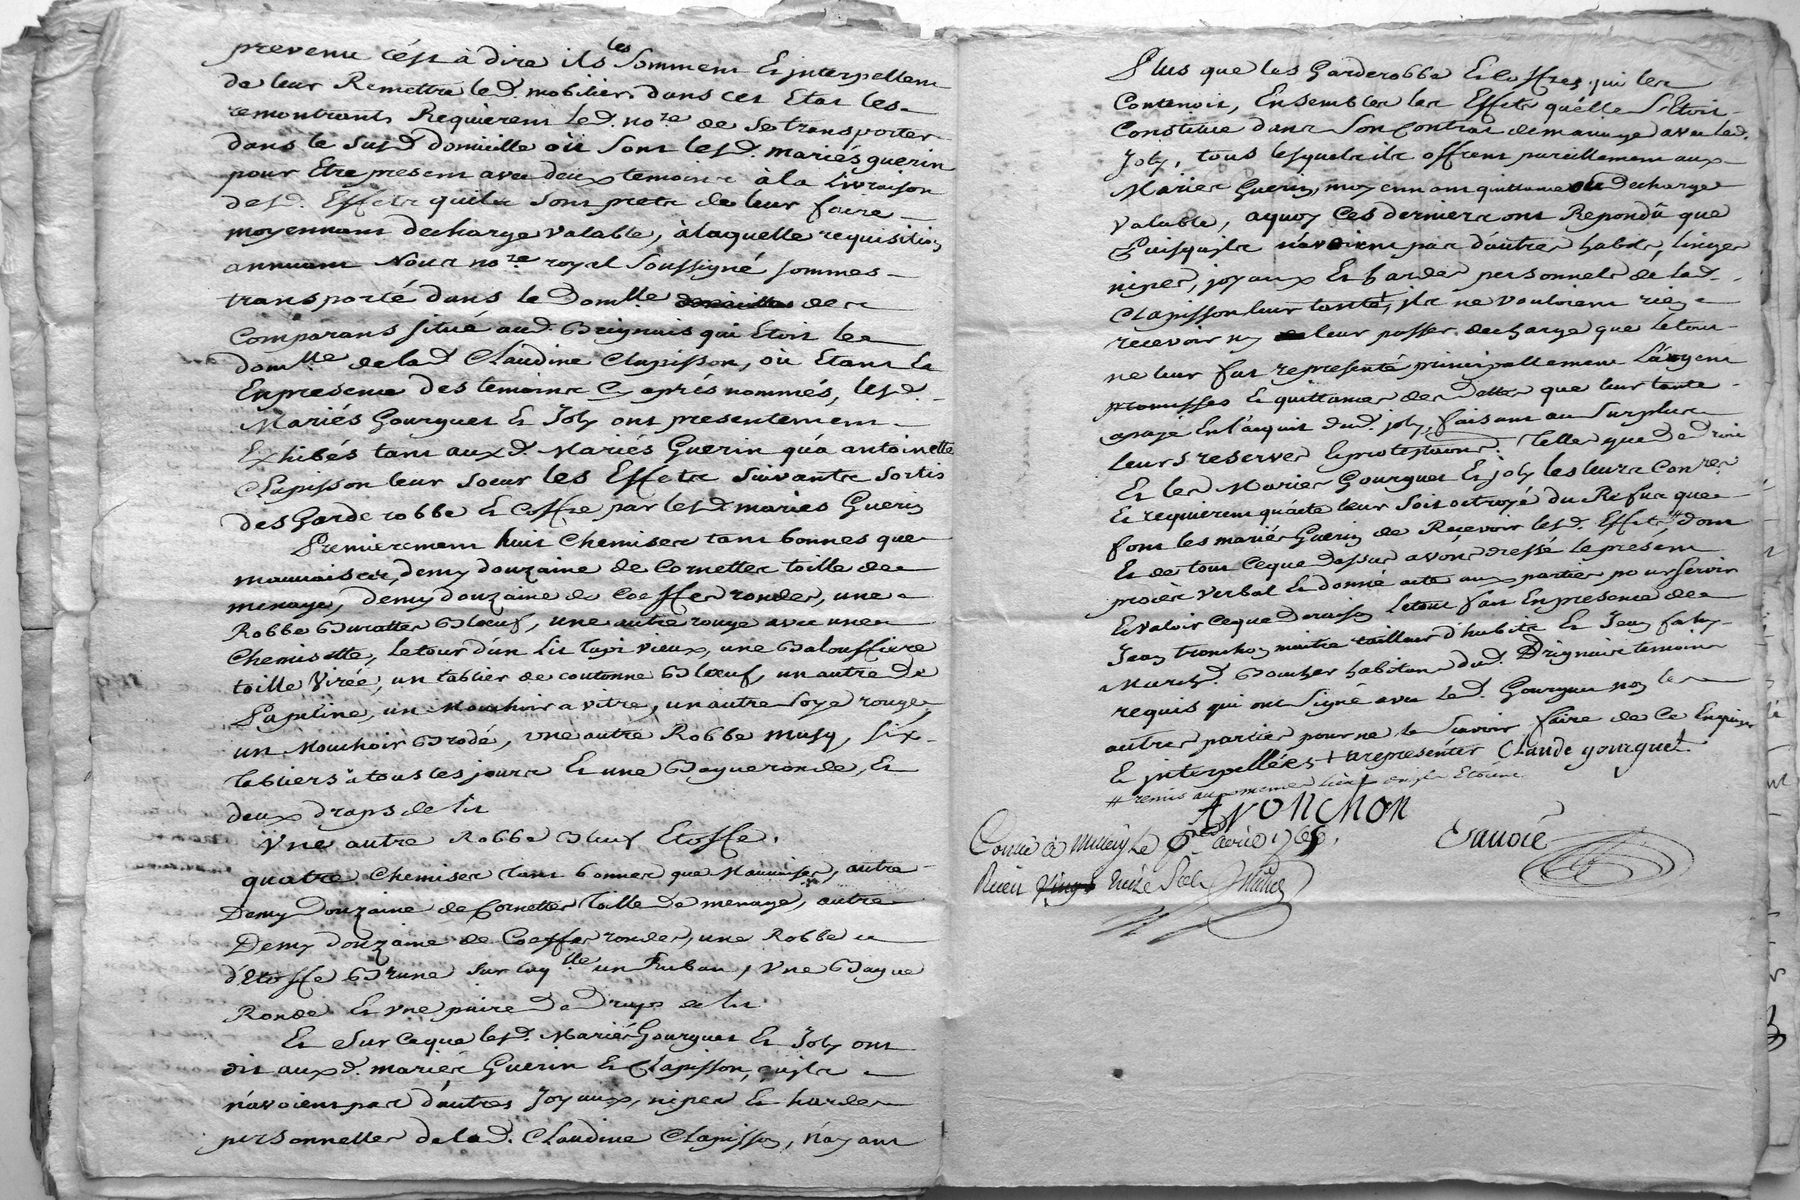 prevenu c'ést à dire ils les Somment Et jnterpellent
de leur Remettre led. mobilier dans cet Etat les
remontrants Requièrent led. no.re de se transporter
dans le susd. domicille où sont lesd. mariés guerin
pour Etre present avec deux temoins à la livraison
desd. Effets quils sont prets de leur faire
moyennant decharge valable, à laquelle requisition
annuant Nous no.re royal soussigné sommes
transporté dans le Dom.lle des
Comparans situé aud. Brignais qui Etoit le
dom.lle de lad. Claudine Clapisson, où Etant la
En presence des temoins Cy après nommés, lesd.
Mariés Gourguet Et Joly ont presentement
Exhibés tant auxd. Mariés Guerin qu'a antoinette
Clapisson leur soeur les Effets suivants sortis
des Garderobbe Et Coffre par lesd. mariés Guerin
Premierement huit Chemises tant bonnes que
mauvaises, demy douzaine de Cornettes toille de
menage, demy douzaine de Coeffes rondes, une
Robbe Buratte Bloeuf, une autre rouge avec une
Chemisette, le tour d'un lit tapi vieux, une
toille Virée, un tablier de coutonne Bloeuf, un autre de
Papeline, un Mouchoir a vitre, un autre soye rouge,
un Mouchoir Brodé, une autre Robbe musq, six
tabliers à tous les jours Et une Bague ronde, Et
deux draps de lit
Vne autre Robbe Bleuf Etoffe,
quatre Chemises tant bonnes que Mauvaises, autre
Demy Douzaine de Cornettes toille de menage, autre
Demy douzaine de Coeffes rondes, une Robbe
d'Etoffe Brune sur laq.lle un Ruban, Vne Bague
Ronde Et Vne paire De Draps de lit
Et sur ceque lesd. Mariés Gourguet Et Joly ont
dit auxd. mariés Guerin Et Clapisson, qu'ils
n'avoient pas d'autres Joyaux, nipes Et hardes
personnelles de lad. Claudine Clapisson, n'ayant
Plus que les Garderobbe Et Coffres qui les
Contenoit, Ensembles les Effets qu'elle s'Etoit
Constitue dans son Contrat de mariage avec led.
Joly, tous lesquels ils offrent pareillement aux
Mariés Guerin moyennant quittance ou decharge
valable, aquoy ces derniers ont Repondû que
Puisqu'ils n'avoient pas d'autres habits, linges
nipes, joyaux Et hardes personnels de lad.
Clapisson leur tante, ils ne vouloient rien
recevoir ny leur passer decharge que le tout
ne leur fut representé principallement l'argent
promesses Et quittances des dettes que leur tante
a payé En l'acquit dud. joly, faisant au surplus
leurs reserves Et protestations telles que de droit
Et les Mariés Gourguet Et joly les leurs Con.res
Et requierent qu'acte leur soit octroyé du Refus que
font les mariés Guerin de Recevoir lesd. Effets # dont
Et de tout Ceque dessus avons dressé le présent
procès verbal Et donné acte aux parties pour servir
Et valoir ceque de raison le tout fait En presence de
Jean tronchon maitre tailleur d'habits Et Jean fahy
March.d Boucher habitans dud. Brignais temoins
requis qui ont signé avec led. Gourguet non les
autres parties pour ne la scavoir faire de ce Enquises
Et jnterpellées + a representer Claude gourguet
# remis au meme lieu ou ils Etoient
tronchon
Conté à Milleri le 6 avril 1765.
Recu treize sols